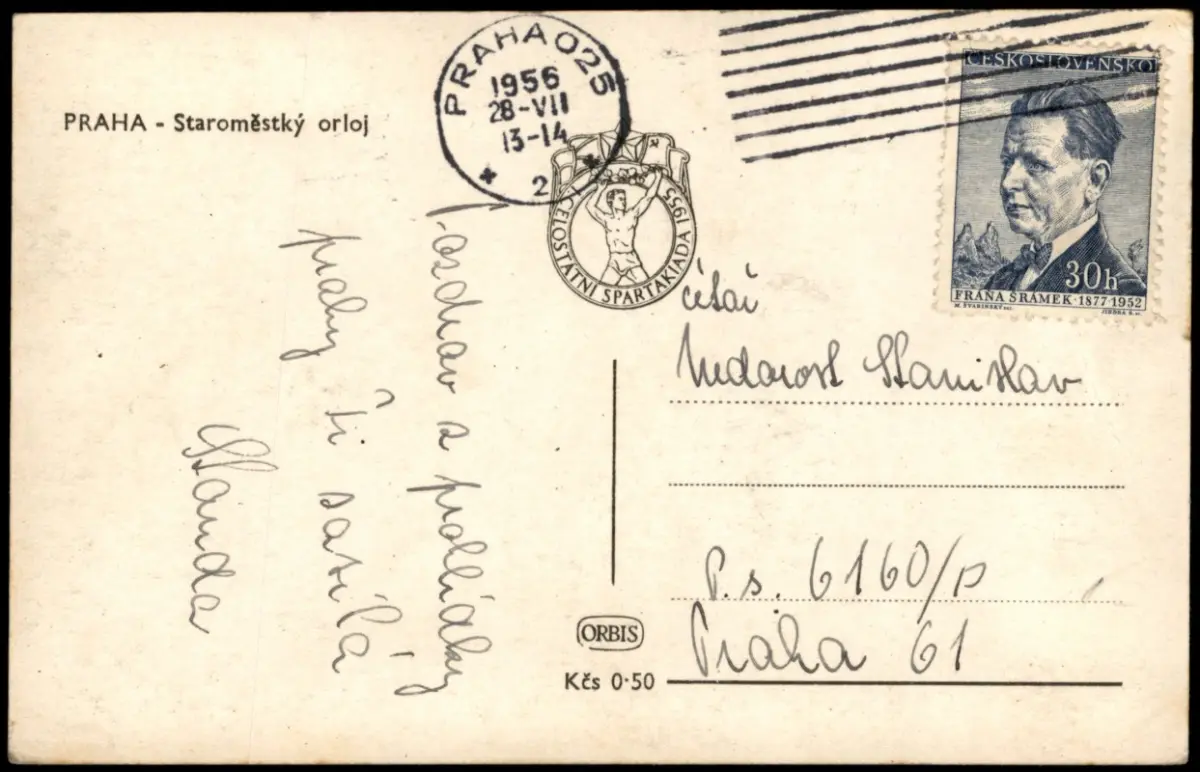 PRAHA - Staroměstký orloj
PRAHA 025
1956
28-VII
13-14
2
ČESKOSLOVENSKO
30h
FRÁŇA ŠRÁMEK · 1877-1952
CELOSTÁTNÍ SPARTAKIADA 1955
Pozdrav z
prahy Ti zasílá
Stánda
četař
Nedorost Stanislav
P.s. 6160/p
Praha 61
ORBIS
Kčs 0·50